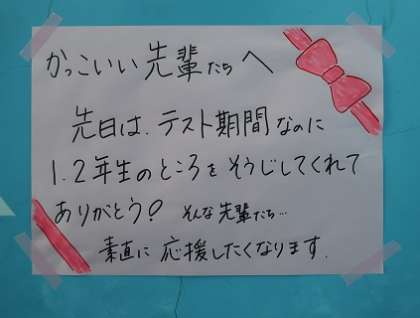 かっこいい先輩たちへ
先日は、テスト期間なのに
1.2年生のところをそうじしてくれて
ありがとう? そんな先輩たち…
素直に応援したくなります.